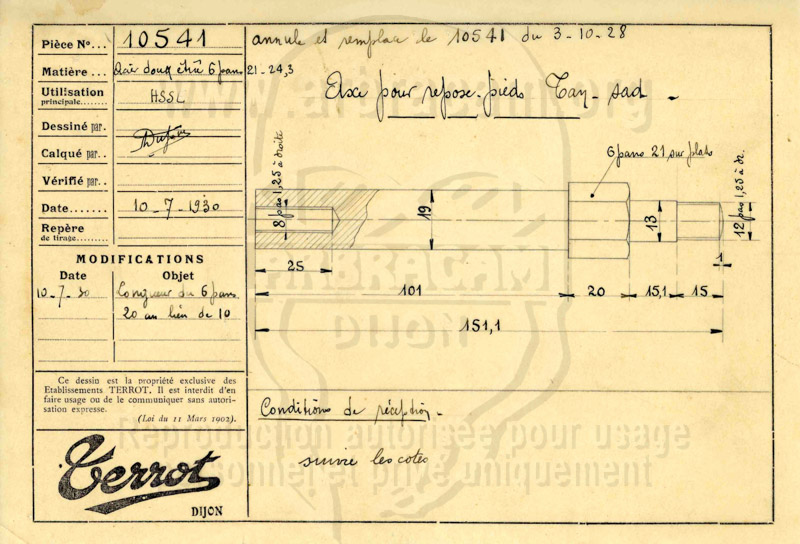 Pièce No... 10541
Matière ... doux étiré 6 pans 21-24,3
Utilisation HSSL
principale
Dessiné par.
Calqué par..
Vérifié par..
Date....... 10-7-1930
Repère
de tirage
MODIFICATIONS
Date Objet
10-7-30 Longueur du 6 pans
20 au lieu de 10
Ce dessin est la propriété exclusive des
Etablissements TERROT. Il est interdit d'en
faire usage ou de le communiquer sans autori-
sation expresse.
(Loi du 11 Mars 1902).
Terrot
DIJON
annule et remplace le 10541 du 3-10-28
Axe pour repose-pieds Tan-sad
6 pans 21 sur plats
8 pas 1,25 à droite
19
13
12 pas 1,25 à dr.
25
1
101
20
15,1
15
151,1
Conditions de réception
suivre les cotes
www.arbracam.org
ARBRACAM
DIJON
Reproduction autorisée pour usage
personnel et privé uniquement